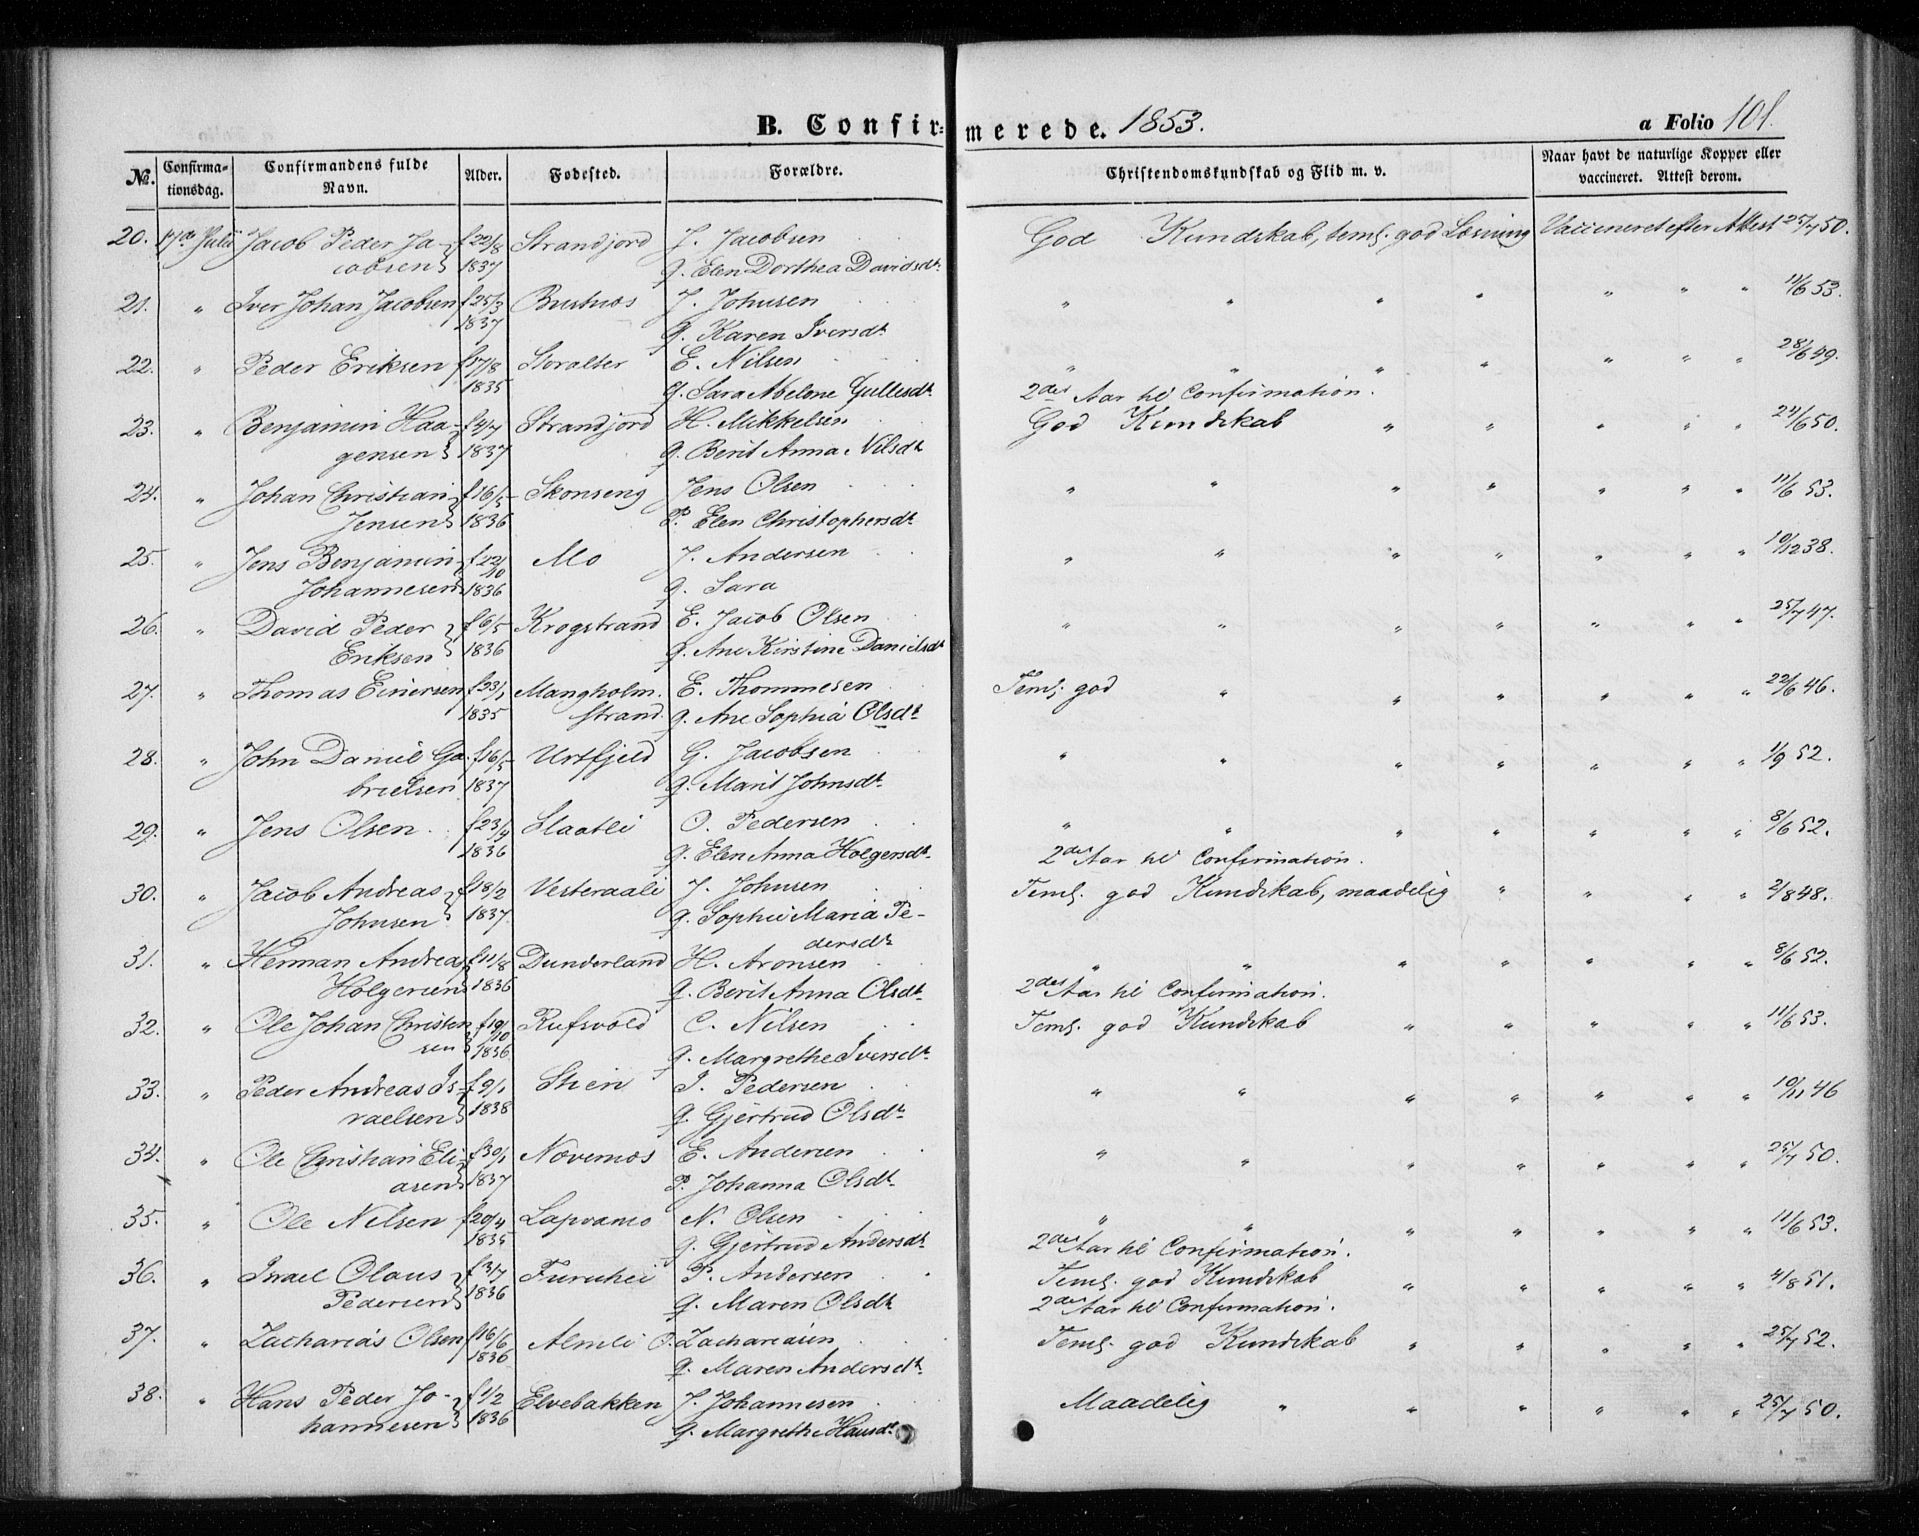 B. Confirmerede. 1853. a Folio 101.
No. Confirmationsdag. Confirmandens fulde Navn. Alder. Fødested. Forældre. Christendomskundskab og Flid m. v. Naar havt de naturlige Kopper eller vaccineret. Attest derom.
20. 17de Julii Jacob Peder Ja- f 22/8 Strandjord J. Jacobsen God Kundskab, teml. god Læsning Vaccineret efter Attest 25/7 50.
cobsen 1837 q. Elen Dorthea Davidsdt
21. " Iver Johan Jacobsen f 25/3 Bustnæs J. Johnsen " " " " " " " 11/6 53.
1837 q. Karen Iversdt
22. " Peder Eriksen f 17/8 Storalter E. Nilsen " " " " " " " 28/6 49.
1835 q. Sara Abelone Gullesdt 2det Aar til Confirmation.
23. " Benjamin Haa- f 4/7 Strandjord H. Mikkelsen God Kundskab " " " " " 24/6 50.
gensen 1837 q. Berit Anna Nilsdt
24. " Johan Christian f 16/5 Skonseng Jens Olsen " " " " " " " 11/6 53.
Jensen 1836 P. Elen Christophersdt
25. " Jens Benjamin f 22/10 Mo J. Andersen " " " " " " " 10/12 38.
Johannesen 1836 q. Sara
26. " David Peder f 6/5 Krogstrand E. Jacob Olsen " " " " " " " 25/7 47.
Eriksen 1836 q. Ane Kirstine Danielsdt
27. " Thomas Einersen f 23/1 Mangholm- E. Thommesen Teml. god " " " " " " 22/6 46.
1835 strand. q. Ane Sophia Olsdt
28. " John Daniel Ga- f 16/5 Urtfjeld G. Jacobsen " " " " " " " 1/9 52.
brielsen 1837 q. Marit Johnsdt
29. " Jens Olsen f 23/9 Slaatli O. Pedersen " " " " " " " 8/6 52.
1836 q. Elen Anna Holgersdt 2det Aar til Confirmation.
30. " Jacob Andreas f 18/2 Vesteraali J. Johnsen Teml. god Kundskab, maadelig " " " " 2/8 48.
Johnsen 1837. q. Sophie Maria Pe-
dersdt
31. " Herman Andreas f 11/8 Dunderland H. Aronsen " " " " " " " 8/6 52.
Holgersen 1836 q. Berit Anna Olsdt 2det Aar til Confirmation.
32. " Ole Johan Christen f 19/10 Rufsvold C. Nilsen Teml. god Kundskab " " " " " 11/6 53.
sen 1836 q. Margrethe Iversdt
33. " Peder Andreas Is- f 9/1 Stien I. Pedersen " " " " " " " 10/11 46
raelsen 1838 q. Gjertrud Olsdt
34. " Ole Christian Eli- f 30/1 Nævernæs E. Andersen " " " " " " " 25/7 50.
asen 1837 P. Johanna Olsdt
35. " Ole Nilsen f 20/4 Lapvamo N. Olsen " " " " " " " 11/6 53.
1835 q. Gjertrud Andersdt 2det Aar til Confirmation.
36. " Israel Olaus f 3/7 Furuhei P. Andersen Teml. god Kundskab " " " " " 4/8 51.
Pedersen 1836 q. Maren Olsdt 2det Aar til Confirmation.
37. " Zacharias Olsen f 16/6 Almli O. Zachariasen Teml. god Kundskab " " " " " 25/7 52.
1836 q. Maren Andersdt
38. " Hans Peder Jo- f 1/2 Elvebakken J. Johannesen Maadelig " " " " " " 25/7 50.
hannesen 1836 q. Margrethe Hansdt